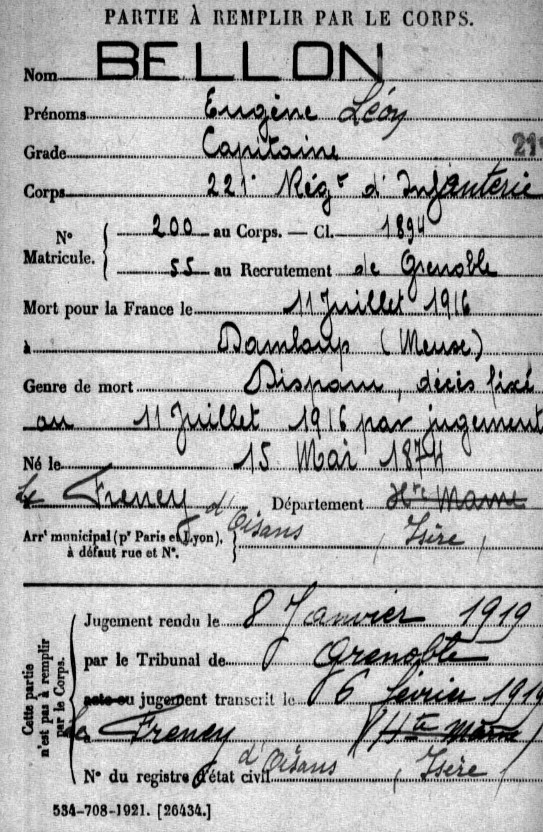 PARTIE À REMPLIR PAR LE CORPS.
Nom BELLON
Prénoms Eugène Léon
Grade Capitaine 21
Corps 221e Régt d'Infanterie
N° Matricule. { 200 au Corps. — Cl. 1894
55 au Recrutement de Grenoble
Mort pour la France le 11 Juillet 1916
à Damloup (Meuse)
Genre de mort Disparu, décès fixé
au 11 Juillet 1916 par jugement
Né le 15 Mai 1874
Le Freney d'Oisans Département Hte Marne
Arrt municipal (pr Paris et Lyon), à défaut rue et N°. } (Isère)
Cette partie n'est pas à remplir par le Corps.
Jugement rendu le 8 Janvier 1919
par le Tribunal de Grenoble
acte ou jugement transcrit le 6 février 1919
à Freney (Hte Marne)
N° du registre d'état civil d'Oisans (Isère)
534-708-1921. [26434.]